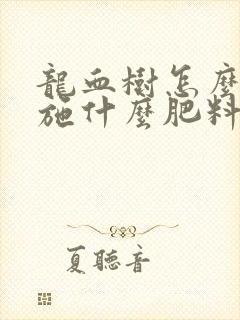 龍血樹怎麼
施什麼肥料
夏聽音